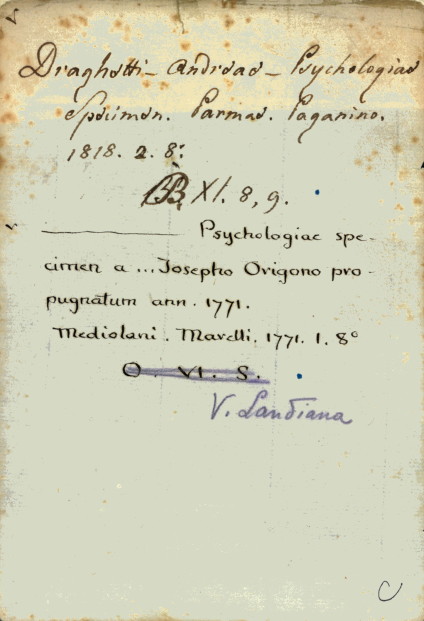 Draghetti - Andreae - Psychologiae
Specimen. Parmae. Paganino.
1818. 2. 8:
BB. XI. 8, 9.
Psychologiae spe-
cimen a ... Josepho Origono pro-
pugnatum ann. 1771.
Mediolani. Marelli. 1771. 1. 8°
O. VI. S.
V. Landiana
C